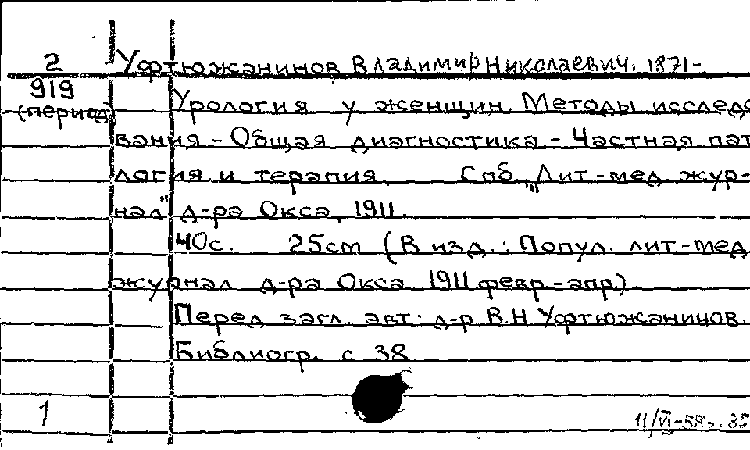 2 Уфтюжанинов Владимир Николаевич. 1871-
919
(период)
Урология у женщин. Методы исследо
вания - Общая диагностика - Частная пат
логия и терапия. Спб, "Лит-мед. жур-
нал" д-ра Окса, 1911.
40с. 25cm (В изд.: Попул. лит-мед
журнал д-ра Окса 1911 февр-апр.)
Перед загл. авт: д-р В.Н Уфтюжанинов.
Библиогр. с 38
1